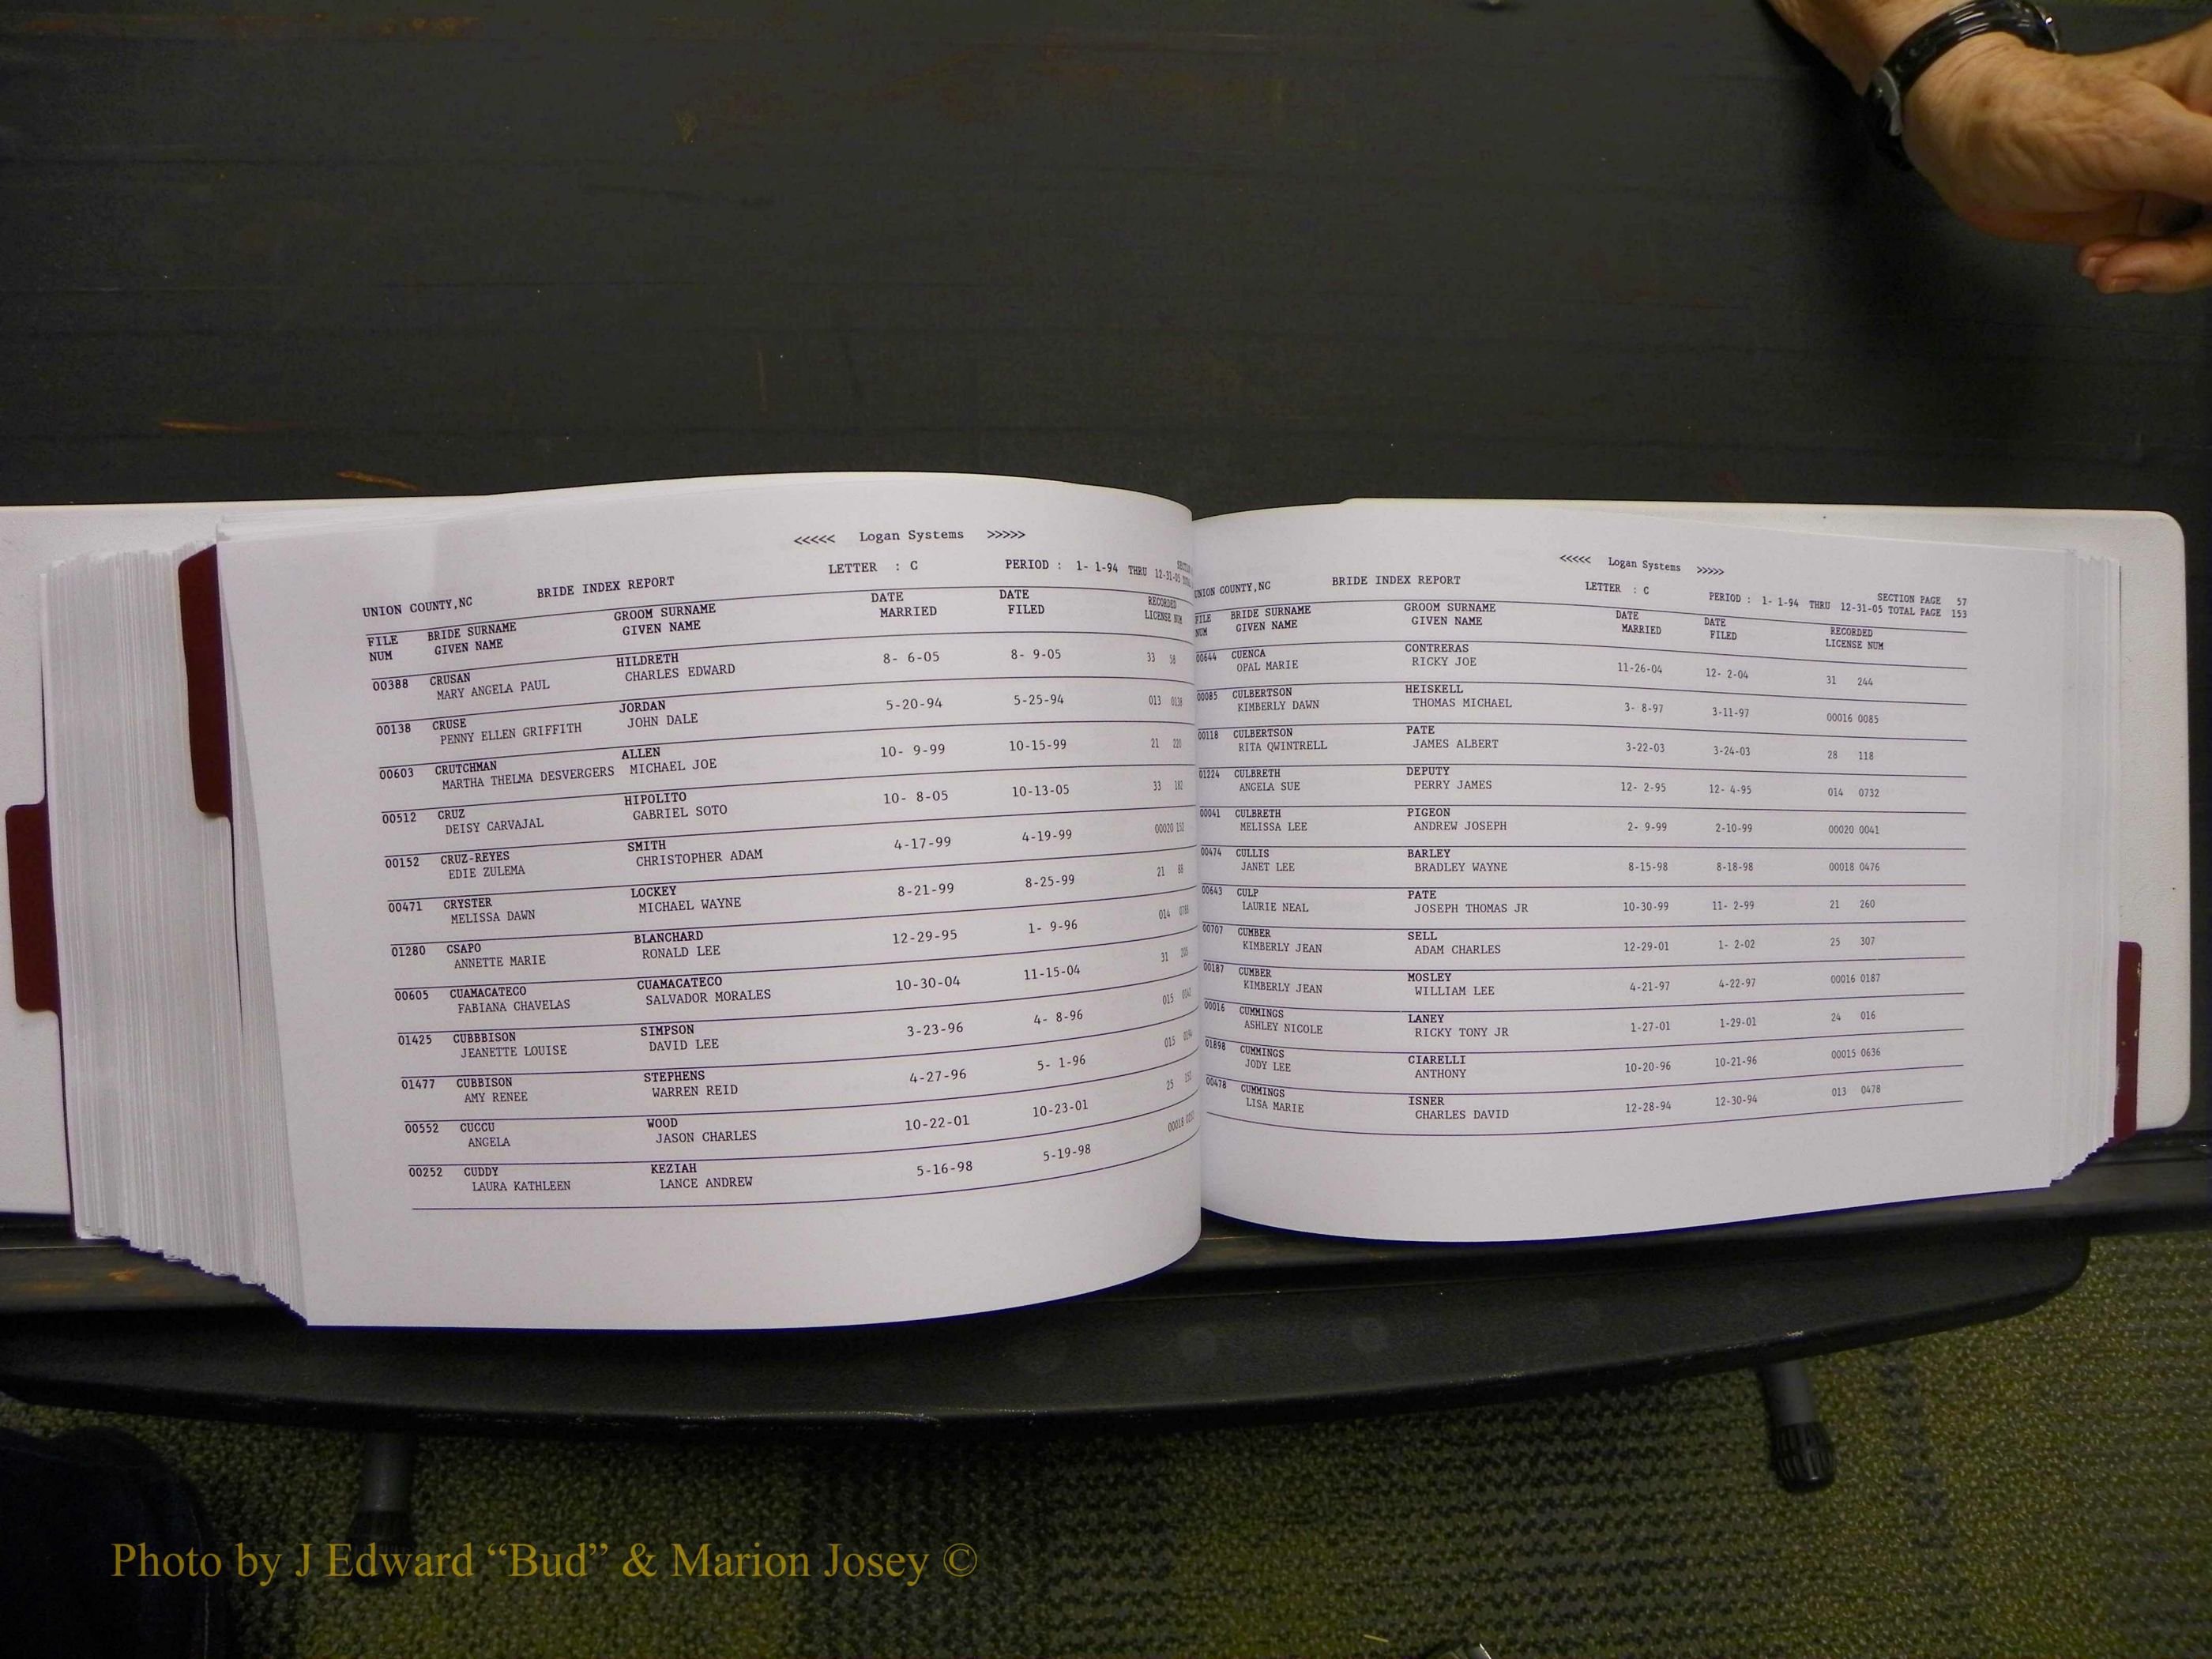 <<<<< Logan Systems >>>>>
UNION COUNTY,NC BRIDE INDEX REPORT LETTER : C PERIOD : 1- 1-94 THRU 12-31-05
FILE BRIDE SURNAME GROOM SURNAME DATE DATE RECORDED
NUM GIVEN NAME GIVEN NAME MARRIED FILED LICENSE NUM
00388 CRUSAN HILDRETH 8- 6-05 8- 9-05 33
MARY ANGELA PAUL CHARLES EDWARD
00138 CRUSE JORDAN 5-20-94 5-25-94 013 0138
PENNY ELLEN GRIFFITH JOHN DALE
00603 CRUTCHMAN ALLEN 10- 9-99 10-15-99 21
MARTHA THELMA DESVERGERS MICHAEL JOE
00512 CRUZ HIPOLITO 10- 8-05 10-13-05 33
DEISY CARVAJAL GABRIEL SOTO
00152 CRUZ-REYES SMITH 4-17-99 4-19-99 00020
EDIE ZULEMA CHRISTOPHER ADAM
00471 CRYSTER LOCKEY 8-21-99 8-25-99 21
MELISSA DAWN MICHAEL WAYNE
01280 CSAPO BLANCHARD 12-29-95 1- 9-96 014
ANNETTE MARIE RONALD LEE
00605 CUAMACATECO CUAMACATECO 10-30-04 11-15-04 31
FABIANA CHAVELAS SALVADOR MORALES
01425 CUBBBISON SIMPSON 3-23-96 4- 8-96 015
JEANETTE LOUISE DAVID LEE
01477 CUBBISON STEPHENS 4-27-96 5- 1-96 015
AMY RENEE WARREN REID
00552 CUCCU WOOD 10-22-01 10-23-01 25
ANGELA JASON CHARLES
00252 CUDDY KEZIAH 5-16-98 5-19-98 00018
LAURA KATHLEEN LANCE ANDREW
<<<<< Logan Systems >>>>>
UNION COUNTY,NC BRIDE INDEX REPORT LETTER : C SECTION PAGE 57
PERIOD : 1- 1-94 THRU 12-31-05 TOTAL PAGE 153
FILE BRIDE SURNAME GROOM SURNAME DATE DATE RECORDED
NUM GIVEN NAME GIVEN NAME MARRIED FILED LICENSE NUM
00644 CUENCA CONTRERAS 11-26-04 12- 2-04 31 244
OPAL MARIE RICKY JOE
00085 CULBERTSON HEISKELL 3- 8-97 3-11-97 00016 0085
KIMBERLY DAWN THOMAS MICHAEL
00118 CULBERTSON PATE 3-22-03 3-24-03 28 118
RITA QWINTRELL JAMES ALBERT
01224 CULBRETH DEPUTY 12- 2-95 12- 4-95 014 0732
ANGELA SUE PERRY JAMES
00041 CULBRETH PIGEON 2- 9-99 2-10-99 00020 0041
MELISSA LEE ANDREW JOSEPH
00474 CULLIS BARLEY 8-15-98 8-18-98 00018 0476
JANET LEE BRADLEY WAYNE
00643 CULP PATE 10-30-99 11- 2-99 21 260
LAURIE NEAL JOSEPH THOMAS JR
00707 CUMBER SELL 12-29-01 1- 2-02 25 307
KIMBERLY JEAN ADAM CHARLES
00187 CUMBER MOSLEY 4-21-97 4-22-97 00016 0187
KIMBERLY JEAN WILLIAM LEE
00016 CUMMINGS LANEY 1-27-01 1-29-01 24 016
ASHLEY NICOLE RICKY TONY JR
01898 CUMMINGS CIARELLI 10-20-96 10-21-96 00015 0636
JODY LEE ANTHONY
00478 CUMMINGS ISNER 12-28-94 12-30-94 013 0478
LISA MARIE CHARLES DAVID
Photo by J Edward “Bud” & Marion Josey ©